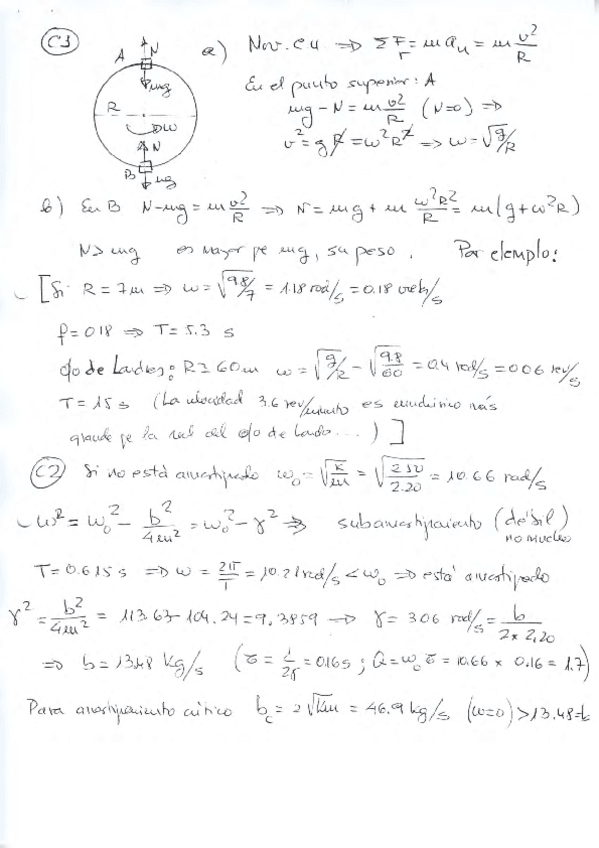 C1
A N a) Mov. C.U ⇒ ΣF_r = m a_n = m v²/R
mg En el punto superior: A
R mg - N = m v²/R (N=0) ⇒
ω N v² = g R = ω² R² ⇒ ω = √g/R
B mg
b) En B N - mg = m v²/R ⇒ N = mg + m ω²R²/R = m(g + ω²R)
N > mg es mayor que mg, su peso. Por ejemplo:
[Si R = 7m ⇒ ω = √9.8/7 = 1.18 rad/s = 0.18 /s
f = 0.18 ⇒ T = 5.3 s
ojo de Londres: R ≃ 60m ω = √g/R - √9.8/60 = 0.4 rad/s = 0.06 rev/s
T = 15 s (La velocidad 3.6 rev/minuto es muchísimo más
grande que la real del ojo de Londo...)]
C2 Si no está amortiguado ω₀ = √k/m = √250/2.20 = 10.66 rad/s
ω² = ω₀² - b²/4m² = ω₀² - γ² ⇒ subamortiguamiento (débil)
no mucho
T = 0.615 s ⇒ ω = 2π/T = 10.21 rad/s < ω₀ ⇒ está amortiguado
γ² = b²/4m² = 113.63 - 104.24 = 9.3859 → γ = 3.06 rad/s = b/2×2.20
⇒ b = 13.48 kg/s (τ = 1/2γ = 0.16s ; Q = ω₀ τ = 10.66 × 0.16 = 1.7)
Para amortiguamiento crítico b_c = 2√km = 46.9 kg/s (ω=0) > 13.48 = b